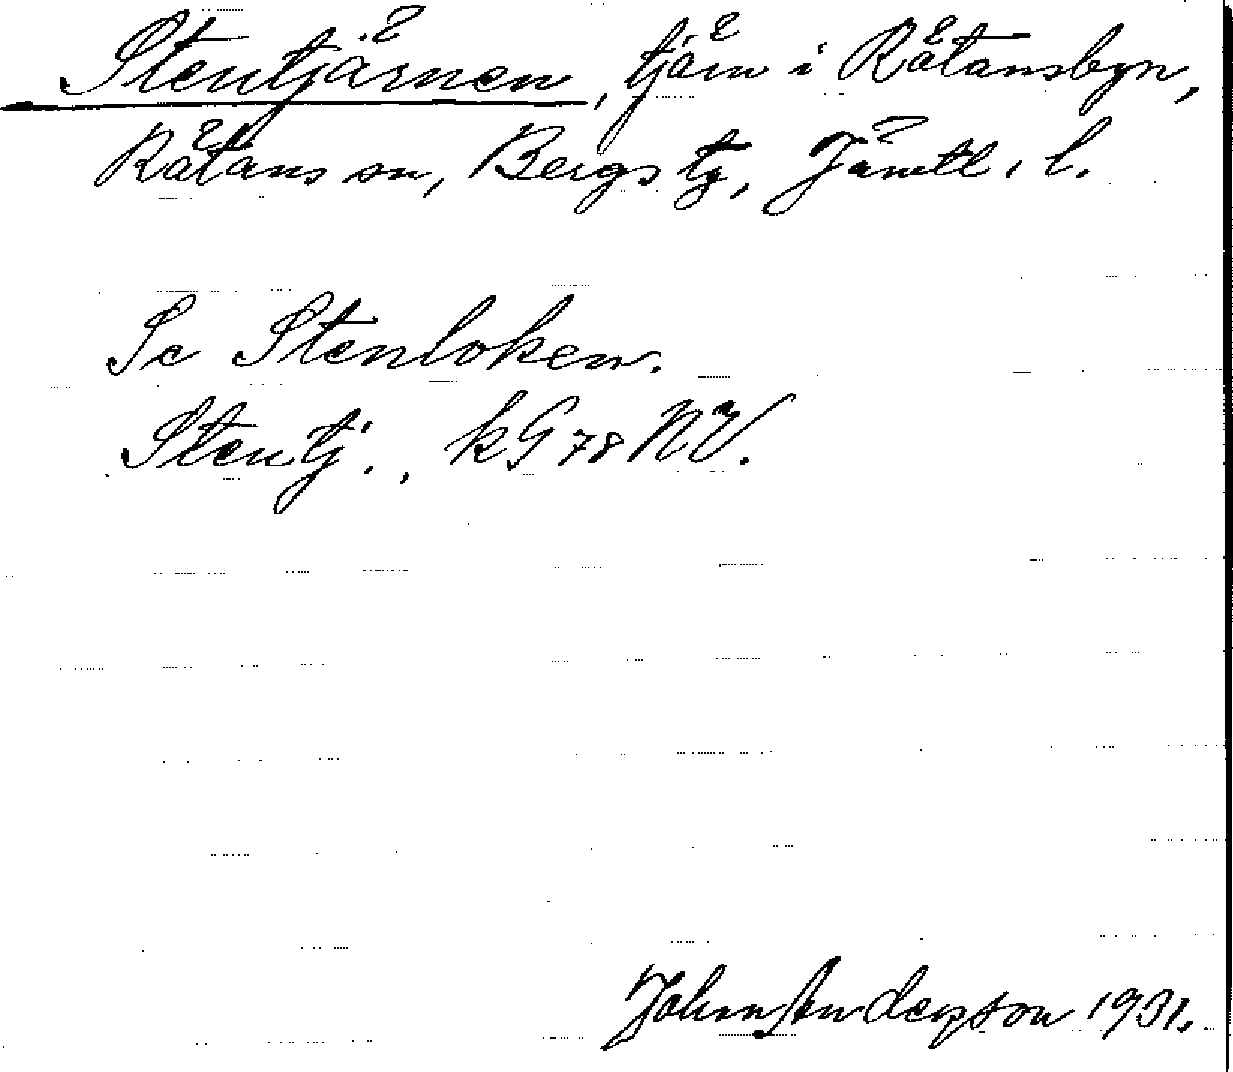 Stentjärnen, tjärn i Rätansbyn,
Rätans sn, Bergs tg, Jämtl. l.
Se Stenloken.
Stentj., kG 78 NV.
John Anderson 1931.